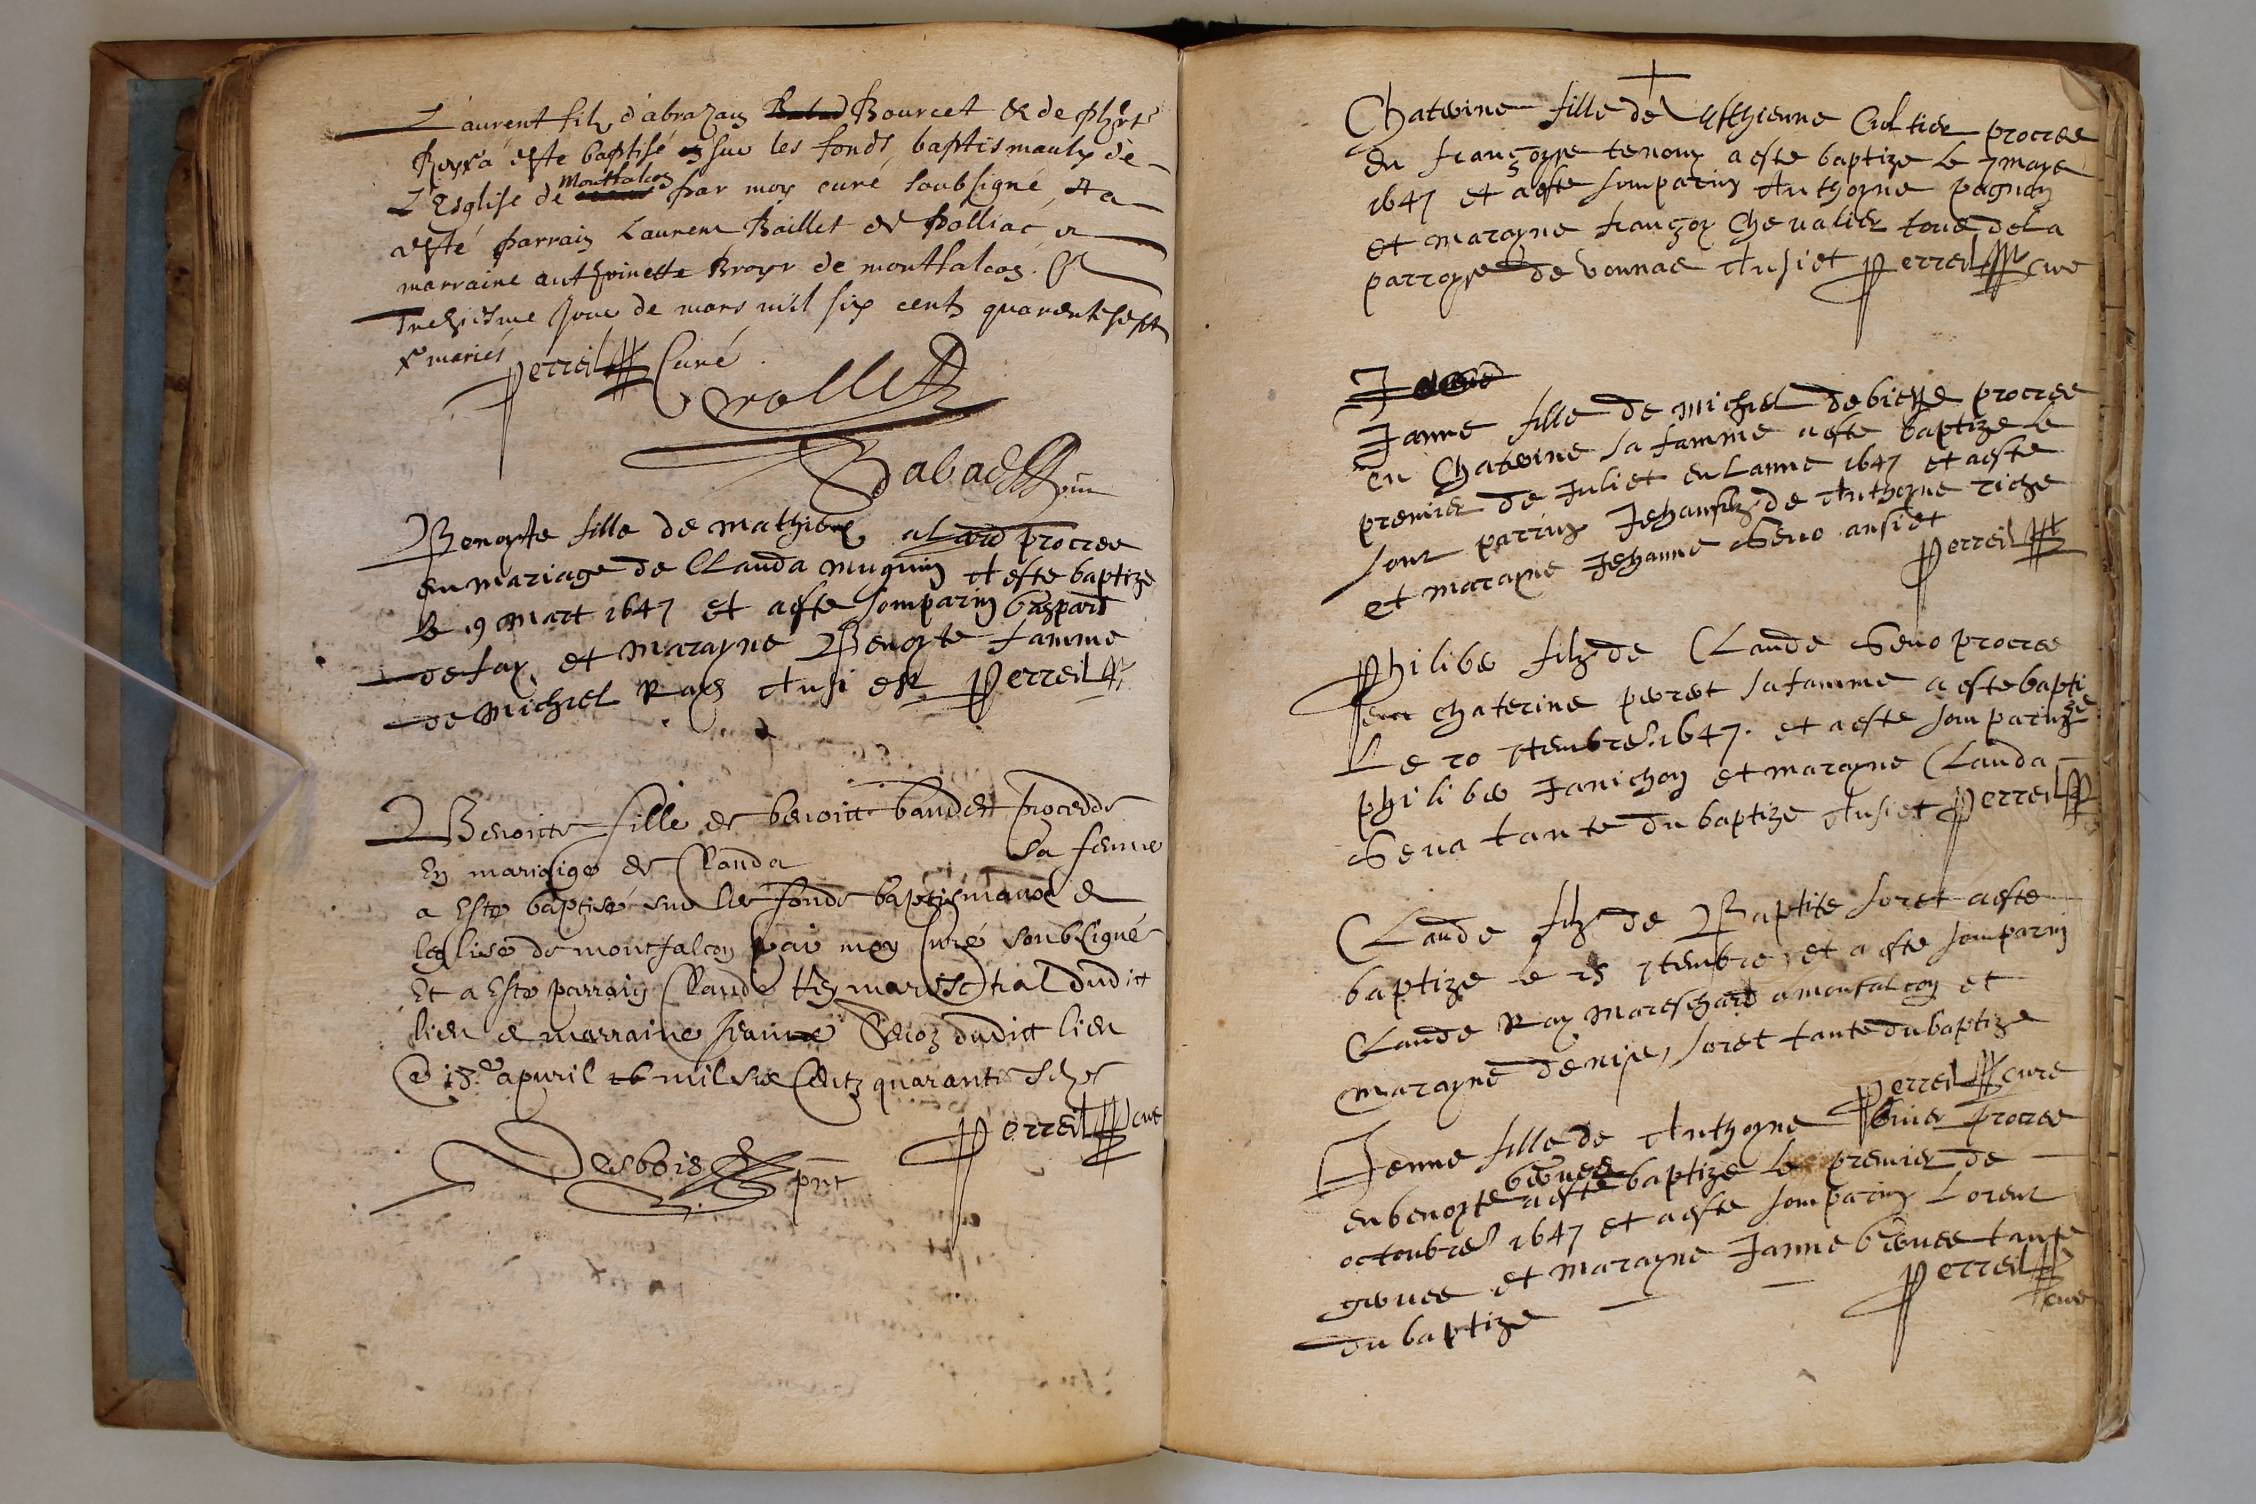 Laurent filz d'abraham Bourcet & de phte
Reyx a este baptisé sur les fonds baptismaulx de
L'Esglise de Montfalcon par moy curé soubsigné, et a
esté parrain Laurent Baillet de Polliac et
marraine anthoinette Broyr de montfalcon. Ce
treziesme jour de mars mil six centz quarente sept
x mariés
Perreil Curé
Crollet
Babad
Benoyte fille de mathieu alard procree
en mariage de Clauda muguin A este baptize
le 9 Mart 1647 et a este somparin Gaspard
defay et Marayne Benoyte famme
de Michel Ray Ainsi est Perreil
Benoitte fille de benoitt baudet procedde
En mariaige de Clauda sa femme
a Esté baptisé sur les fonds baptismaux de
leglise de montfalcon par moy Curé soubsigné
Et a Esté parrain Claude Rey mareschal duditt
lieu & marraine Jeanne Senoz dudict lieu
Ce 18e apuril mil six Centz quarante
Perreil cure
Desbois pnt
Chaterine fille de Esthienne Cultier procree
en françoyse tenon a este baptize le 7 maye
1647 et a este somparin Anthoyne pagnon
et marayne françoy Chevalier tous de la
parroyse de vonnas Ausi et Perreil cure
Janne fille de Michel debiesse procree
en Chaterine sa famme a este baptize le
premier de Juliet en Lanne 1647 et a este
sont parrin Jehan filz de Anthoyne riche
et marayne Jehanne Seno ansi et
Perreil
Philibe filz de Claude Seno procree
en chaterine perret sa famme a este bapti
ze
Le 20 7tembre 1647. et a este somparin
philibe Janichon et marayne Clauda
Sena tante du baptize Ausi et Perreil
Claude filz de Baptite soret a este
baptize le 25 7tembre et a este somparin
Claude Ray Mareschard a monfalcon et
marayne denise soret tante du baptize
Perreil cure
Jenne fille de Anthoyne procree
en benoyte grevee a este baptize le premier de
octoubre 1647 et a este somparin Lorent
grevee et marayne Janne grevee tante
du baptize
Perreil
cure